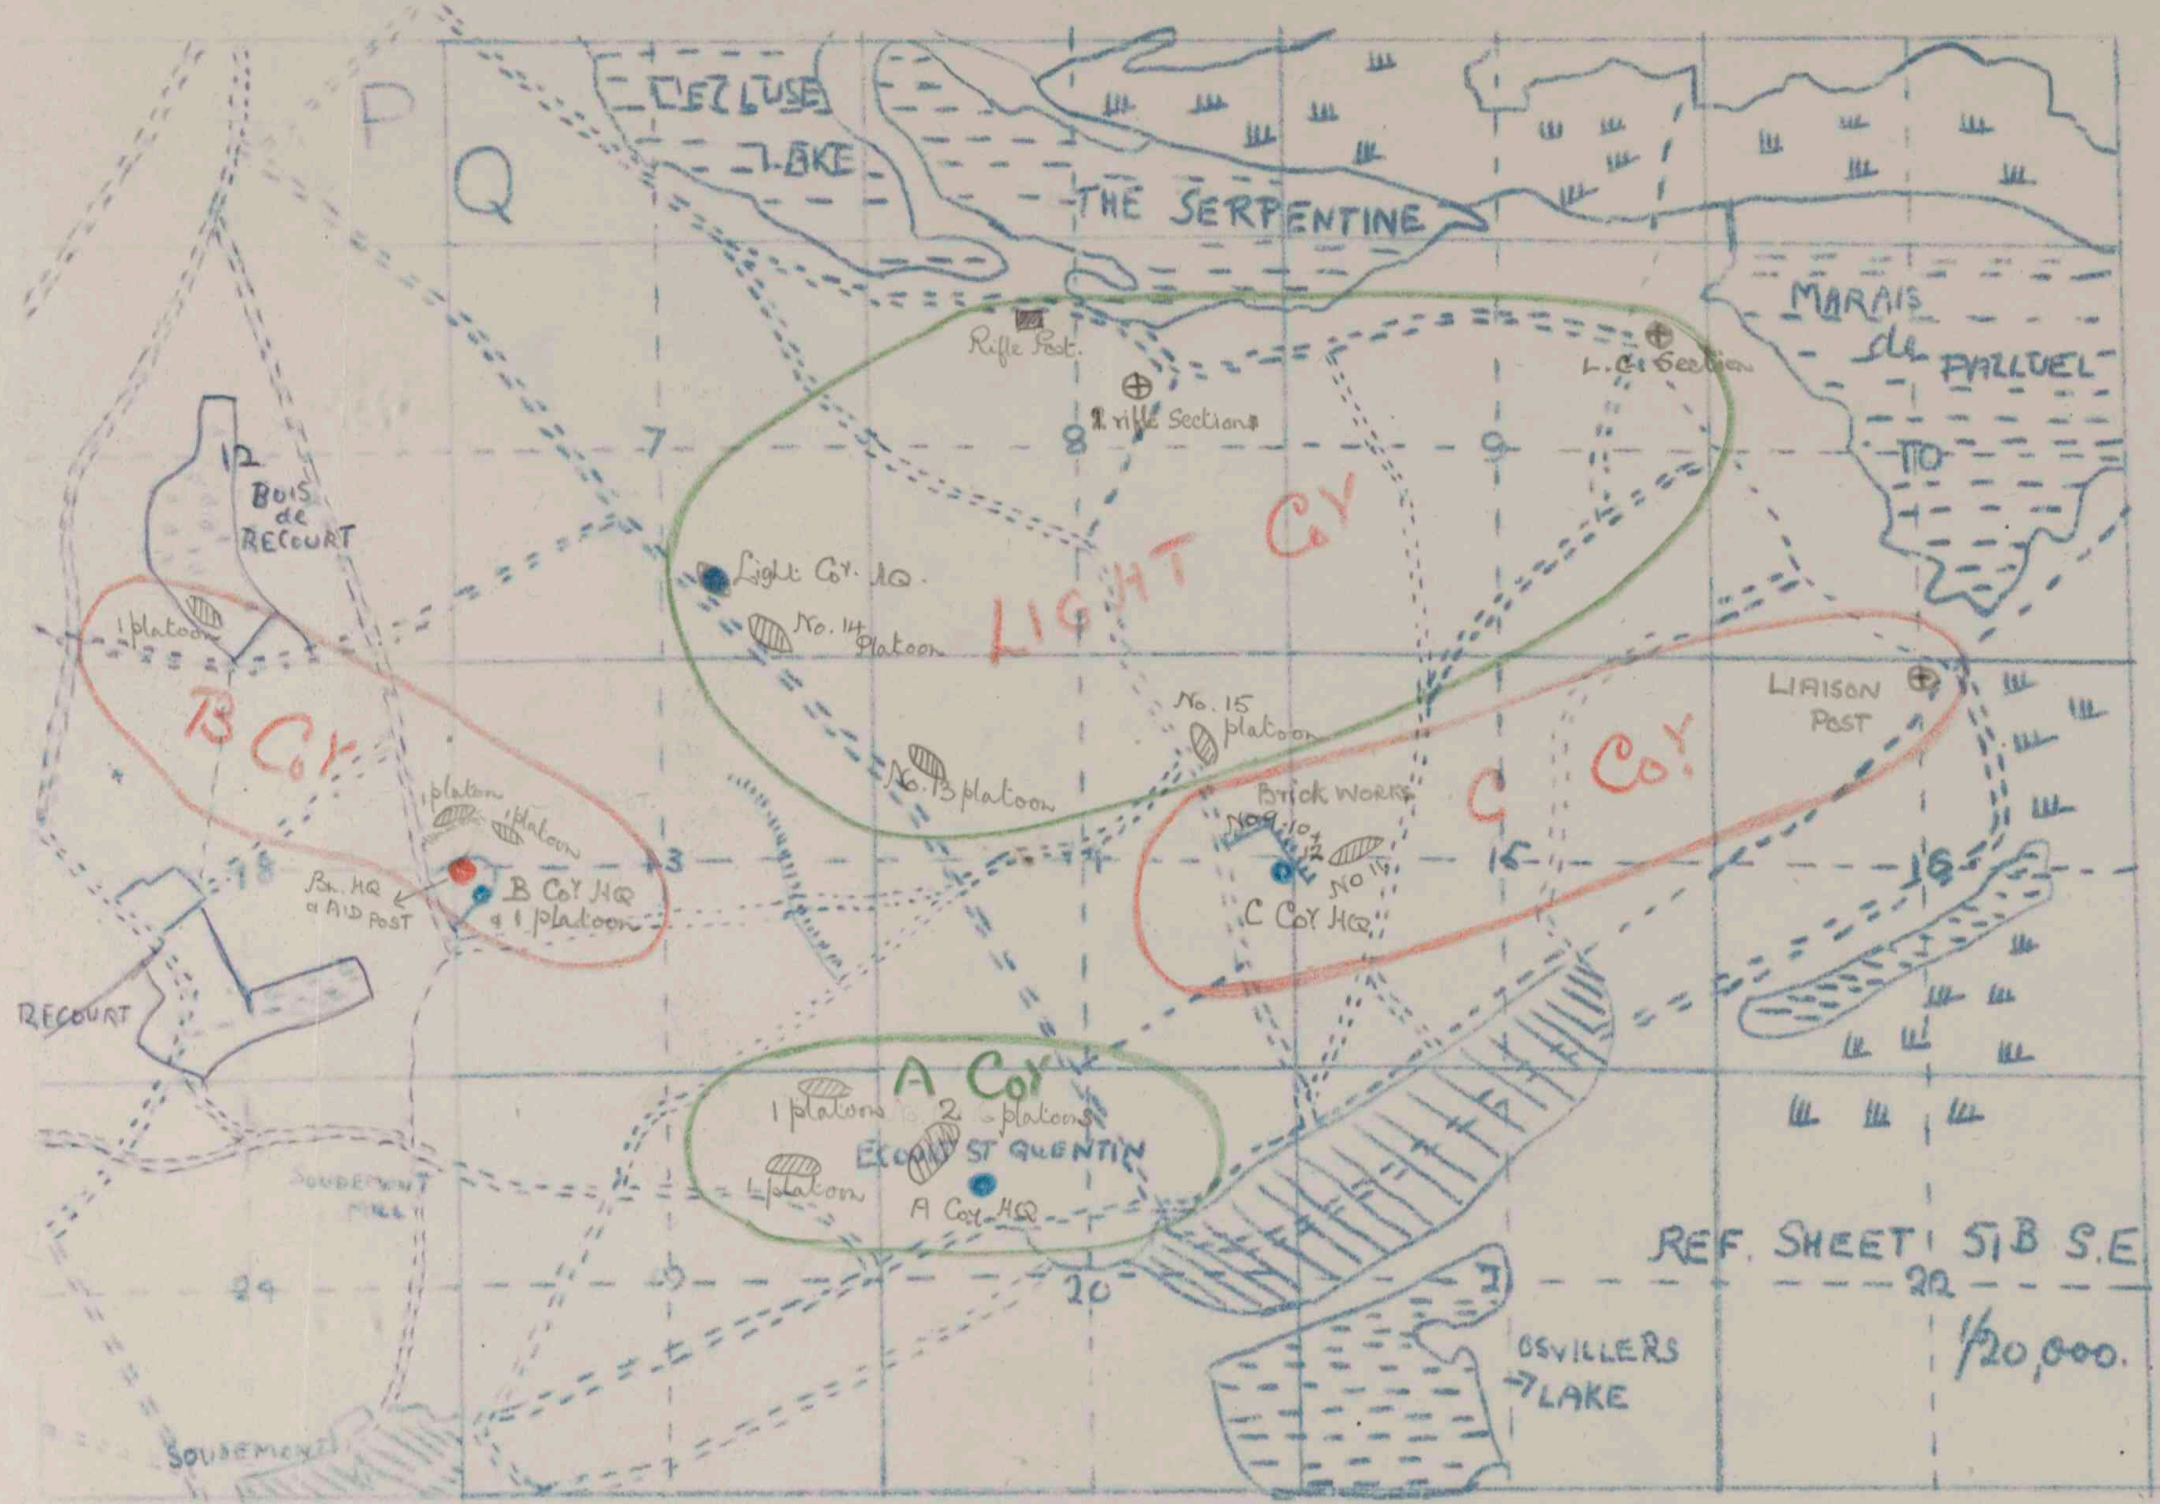 P
Q
LECLUSE
LAKE
THE SERPENTINE
MARAIS
de
PALLUEL
Rifle Post.
L.G. Section
rifle Sections
7
8
9
10
12
BOIS
de
RECOURT
LIGHT Coy
Light Coy. HQ.
No. 14
Platoon
1 platoon
B Coy
LIAISON
POST
No. 15
platoon
C Coy
No. 13 platoon
Brick Works
No 9. 10 +
12
No 11
C Coy HQ
1 platoon
1 platoon
13
15
16
18
Bn. HQ
& AID POST
B Coy HQ
& 1 platoon
RECOURT
A Coy
1 platoon
2 platoons
ECOURT ST QUENTIN
1 platoon
A Coy HQ
SOUDEMONT
MILL
24
20
22
REF. SHEET 51B S.E.
1/20,000.
OSVILLERS
LAKE
SOUDEMONT